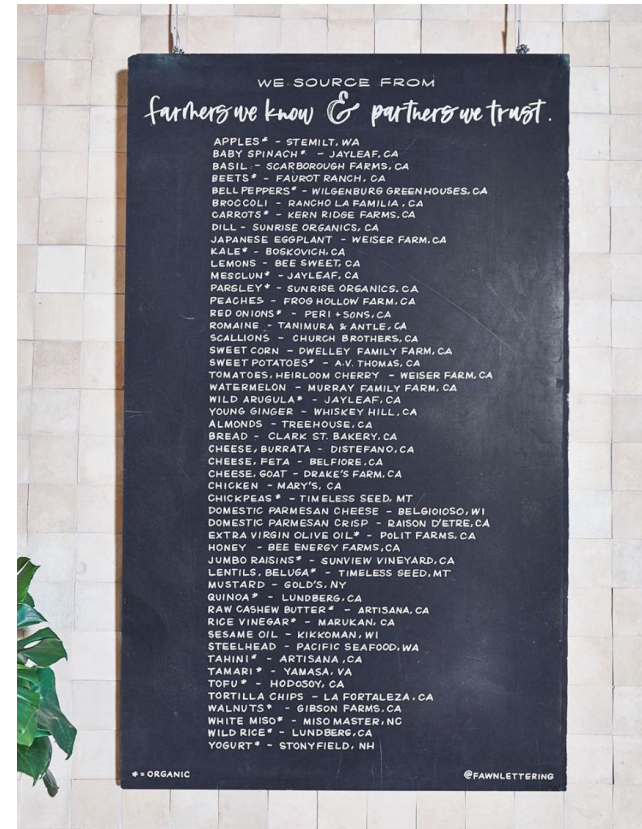 WE SOURCE FROM
farmers we know & partners we trust.
APPLES* - STEMILT, WA
BABY SPINACH* - JAYLEAF, CA
BASIL - SCARBOROUGH FARMS, CA
BEETS* - FAUROT RANCH, CA
BELL PEPPERS* - WILGENBURG GREENHOUSES, CA
BROCCOLI - RANCHO LA FAMILIA, CA
CARROTS* - KERN RIDGE FARMS, CA
DILL - SUNRISE ORGANICS, CA
JAPANESE EGGPLANT - WEISER FARM, CA
KALE* - BOSKOVICH, CA
LEMONS - BEE SWEET, CA
MESCLUN* - JAYLEAF, CA
PARSLEY* - SUNRISE ORGANICS, CA
PEACHES - FROG HOLLOW FARM, CA
RED ONIONS* - PERI + SONS, CA
ROMAINE - TANIMURA & ANTLE, CA
SCALLIONS - CHURCH BROTHERS, CA
SWEET CORN - DWELLEY FAMILY FARM, CA
SWEET POTATOES* - A.V. THOMAS, CA
TOMATOES, HEIRLOOM CHERRY - WEISER FARM, CA
WATERMELON - MURRAY FAMILY FARM, CA
WILD ARUGULA* - JAYLEAF, CA
YOUNG GINGER - WHISKEY HILL, CA
ALMONDS - TREEHOUSE, CA
BREAD - CLARK ST. BAKERY, CA
CHEESE, BURRATA - DISTEFANO, CA
CHEESE, FETA - BELFIORE, CA
CHEESE, GOAT - DRAKE'S FARM, CA
CHICKEN - MARY'S, CA
CHICKPEAS* - TIMELESS SEED, MT
DOMESTIC PARMESAN CHEESE - BELGIOIOSO, WI
DOMESTIC PARMESAN CRISP - RAISON D'ETRE, CA
EXTRA VIRGIN OLIVE OIL* - POLIT FARMS, CA
HONEY - BEE ENERGY FARMS, CA
JUMBO RAISINS* - SUNVIEW VINEYARD, CA
LENTILS, BELUGA* - TIMELESS SEED, MT
MUSTARD - GOLD'S, NY
QUINOA* - LUNDBERG, CA
RAW CASHEW BUTTER* - ARTISANA, CA
RICE VINEGAR* - MARUKAN, CA
SESAME OIL - KIKKOMAN, WI
STEELHEAD - PACIFIC SEAFOOD, WA
TAHINI* - ARTISANA, CA
TAMARI* - YAMASA, VA
TOFU* - HODOSOY, CA
TORTILLA CHIPS - LA FORTALEZA, CA
WALNUTS* - GIBSON FARMS, CA
WHITE MISO* - MISO MASTER, NC
WILD RICE* - LUNDBERG, CA
YOGURT* - STONYFIELD, NH
* = ORGANIC
@FAWNLETTERING